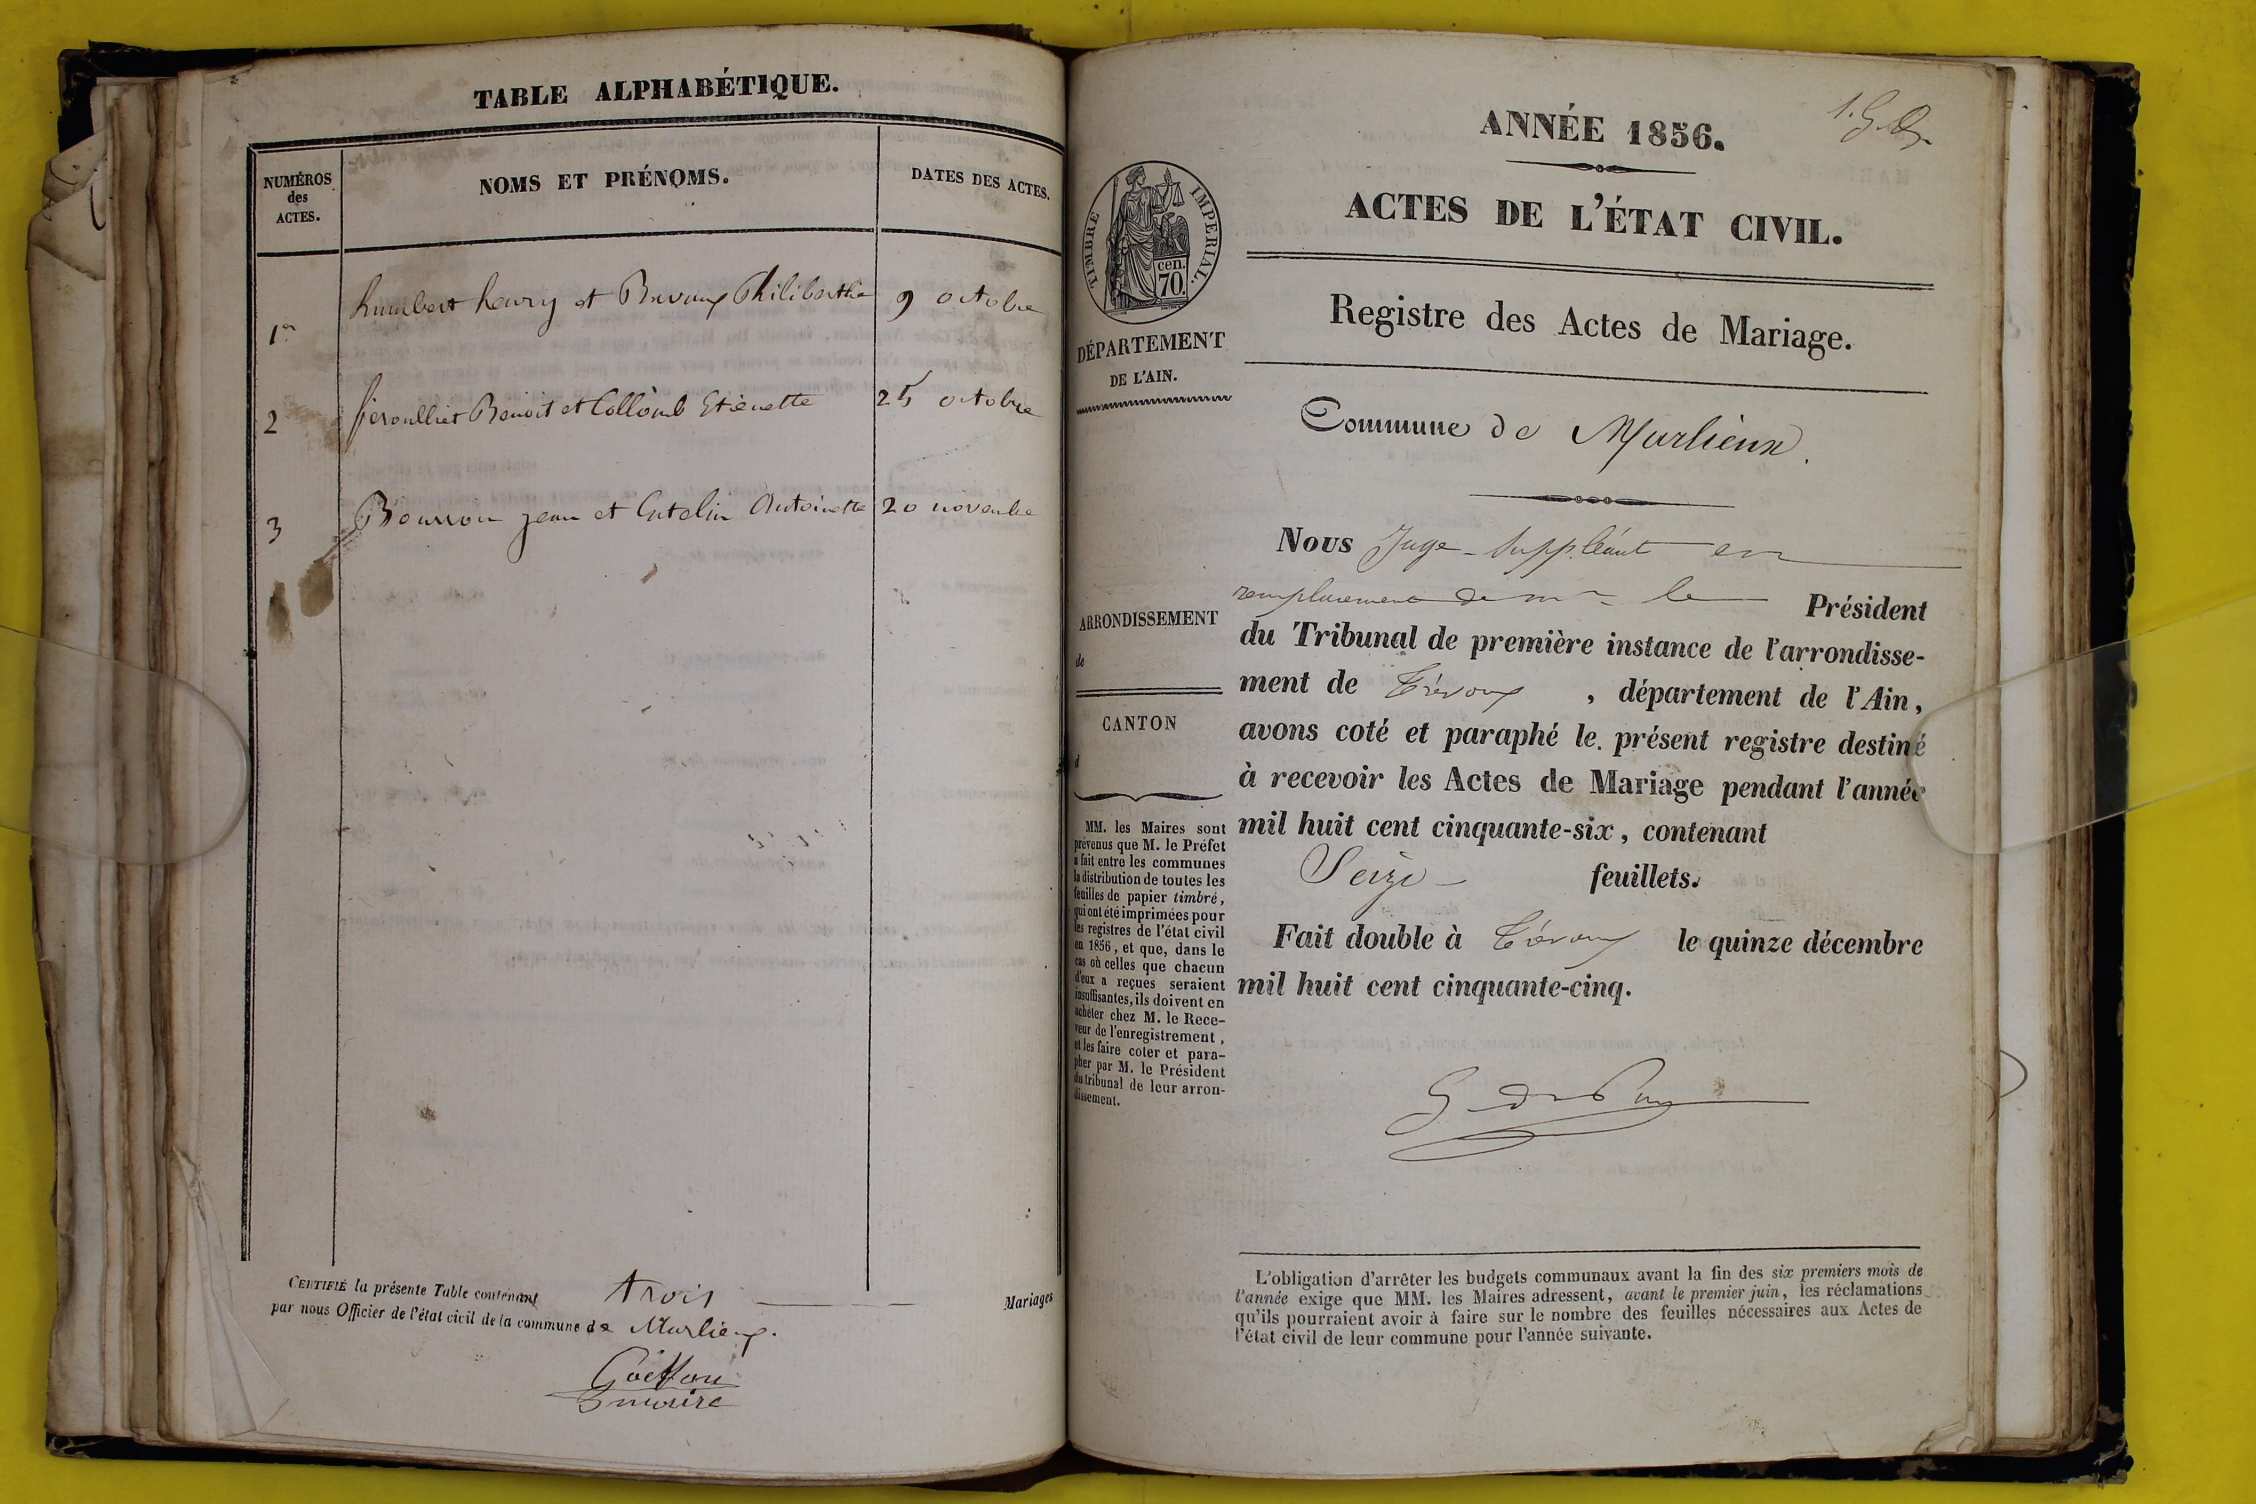 TABLE ALPHABÉTIQUE.
NUMÉROS des ACTES.
NOMS ET PRÉNOMS.
DATES DES ACTES.
1er humbert henry et Philiberthe 9 octobre
2 Benoit et Collomb Etienette 25 octobre
3 Bourron jean et Antoinette 20 novembre
CERTIFIÉ la présente Table contenant trois Mariages
par nous Officier de l'état civil de la commune de Marlieux.
maire
ANNÉE 1856.
ACTES DE L'ÉTAT CIVIL.
TIMBRE IMPERIAL.
cen.
70.
DÉPARTEMENT
DE L'AIN.
Registre des Actes de Mariage.
Commune de Marlieux.
ARRONDISSEMENT
de
CANTON
d
MM. les Maires sont
prévenus que M. le Préfet
a fait entre les communes
la distribution de toutes les
feuilles de papier timbré,
qui ont été imprimées pour
les registres de l'état civil
en 1856, et que, dans le
cas où celles que chacun
d'eux a reçues seraient
insuffisantes, ils doivent en
achéter chez M. le Rece-
veur de l'enregistrement,
et les faire coter et para-
pher par M. le Président
du tribunal de leur arron-
dissement.
Nous Juge-Suppléant en
remplacement de mr le Président
du Tribunal de première instance de l'arrondisse-
ment de Trévoux, département de l'Ain,
avons coté et paraphé le présent registre destiné
à recevoir les Actes de Mariage pendant l'année
mil huit cent cinquante-six, contenant
Seize feuillets.
Fait double à Trévoux le quinze décembre
mil huit cent cinquante-cinq.
L'obligation d'arrêter les budgets communaux avant la fin des six premiers mois de
l'année exige que MM. les Maires adressent, avant le premier juin, les réclamations
qu'ils pourraient avoir à faire sur le nombre des feuilles nécessaires aux Actes de
l'état civil de leur commune pour l'année suivante.